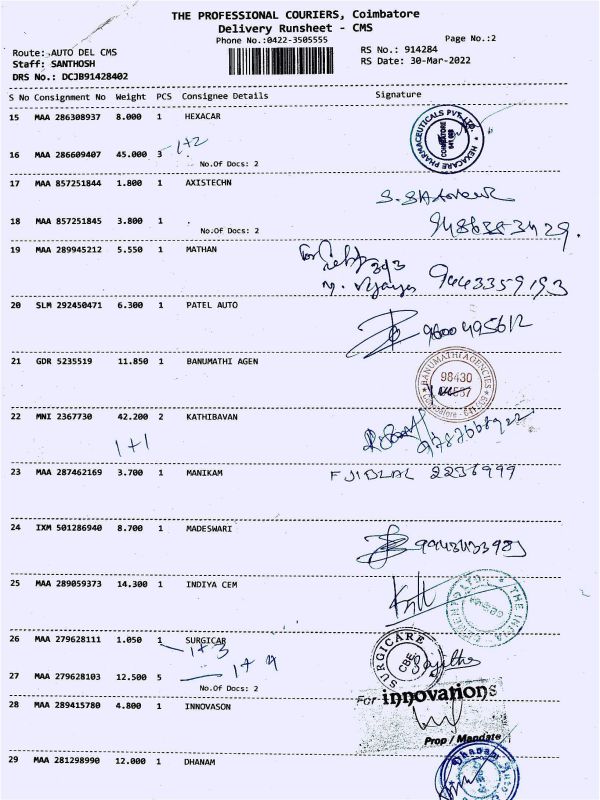 THE PROFESSIONAL COURIERS, Coimbatore
Delivery Runsheet - CMS
Phone No.:0422-3505555
Page No.:2
Route: AUTO DEL CMS
RS No.: 914284
Staff: SANTHOSH
RS Date: 30-Mar-2022
DRS No.: DCJB91428402
S No Consignment No Weight PCS Consignee Details Signature
15 MAA 286308937 8.000 1 HEXACAR
HEXACARE PHARMACEUTICALS PVT. LTD. COIMBATORE
1+2
16 MAA 286609407 45.000 3 .
No.Of Docs: 2
17 MAA 857251844 1.800 1 AXISTECHN
18 MAA 857251845 3.800 1 .
No.Of Docs: 2
9486383429.
19 MAA 289945212 5.550 1 MATHAN
9443359193
20 SLM 292450471 6.300 1 PATEL AUTO
9600495612
21 GDR 5235519 11.850 1 BANUMATHI AGEN
BANUMATHI AGENCIES
98430
22 MNI 2367730 42.200 2 KATHIBAVAN
1+1
23 MAA 287462169 3.700 1 MANIKAM
2236999
24 IXM 501286940 8.700 1 MADESWARI
25 MAA 289059373 14.300 1 INDIYA CEM
26 MAA 279628111 1.050 1 SURGICAR
1+3
SURGICARE CBE
27 MAA 279628103 12.500 5 .
1+4
No.Of Docs: 2
For innovations
28 MAA 289415780 4.800 1 INNOVASON
Prop / Mandate
29 MAA 281298990 12.000 1 DHANAM
Dhanam